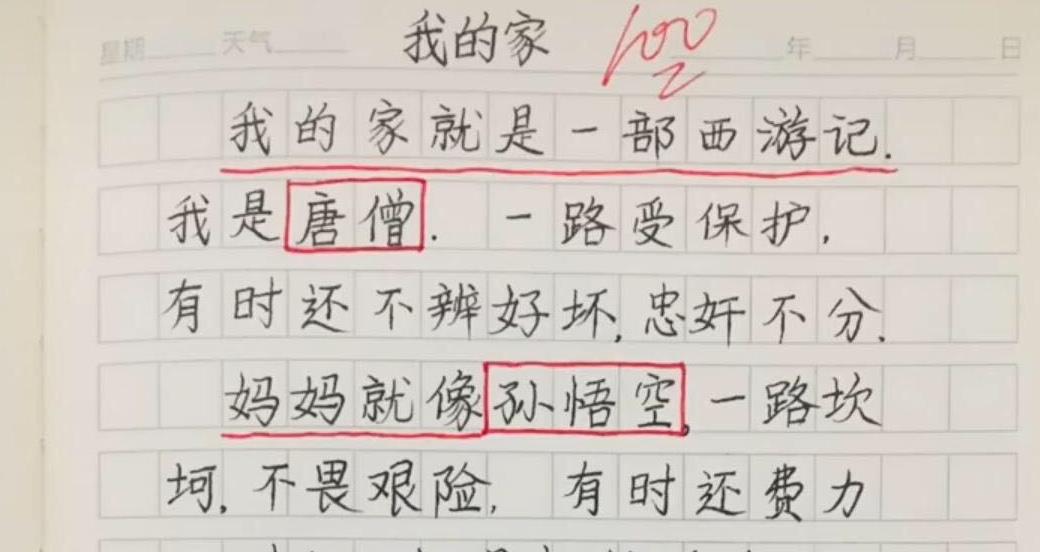 我的家 100
星期 天气 年 月 日
我的家就是一部西游记.
我是唐僧. 一路受保护,
有时还不辨好坏,忠奸不分.
妈妈就像孙悟空,一路坎
坷,不畏艰险, 有时还费力